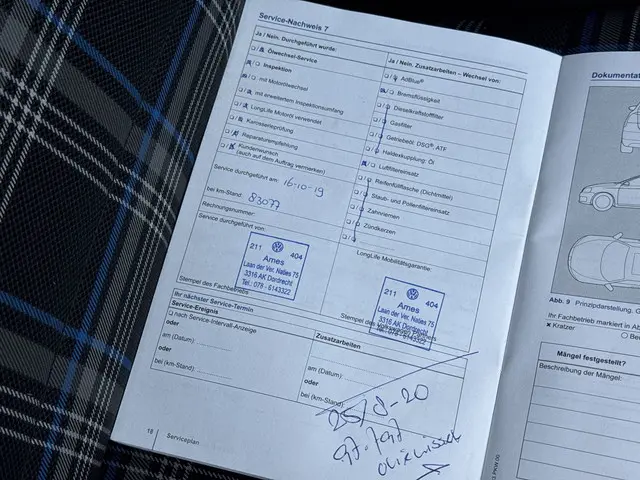 Service-Nachweis 7
Ja / Nein. Durchgeführt wurde:
Ölwechsel-Service
Inspektion
mit Motorölwechsel
mit erweitertem Inspektionsumfang
LongLife Motoröl verwendet
Karosserieprüfung
Reparaturempfehlung
Kundenwunsch
(auch auf dem Auftrag vermerken)
Service durchgeführt am: 16-10-19
bei km-Stand: 83077
Rechnungsnummer:
Service durchgeführt von:
211 404
Ames
Laan der Ver. Naties 75
3316 AK Dordrecht
Tel.: 078 - 6143322
Stempel des Fachbetriebs
Ja / Nein. Zusatzarbeiten – Wechsel von:
AdBlue®
Bremsflüssigkeit
Dieselkraftstofffilter
Gasfilter
Getriebeöl: DSG®, ATF
Haldexkupplung: Öl
Luftfiltereinsatz
Reifenfüllflasche (Dichtmittel)
Staub- und Pollenfiltereinsatz
Zahnriemen
Zündkerzen
LongLife Mobilitätsgarantie:
211 404
Ames
Laan der Ver. Naties 75
3316 AK Dordrecht
Stempel des
Ihr nächster Service-Termin
Service-Ereignis
nach Service-Intervall-Anzeige
oder
am (Datum)
oder
bei (km-Stand)
Zusatzarbeiten
am (Datum)
oder
bei (km-Stand)
97.797
18 Serviceplan
Dokumenta
Abb. 9 Prinzipdarstellung.
Ihr Fachbetrieb markiert in A
Kratzer
Mängel festgestellt?
Beschreibung der Mängel: